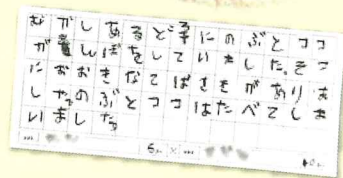 むかしあるど手にのぶとココ
がんぽをしていました。そこ
におおきなてばさきがありま
した。のぶとココはたべてしま
いました。